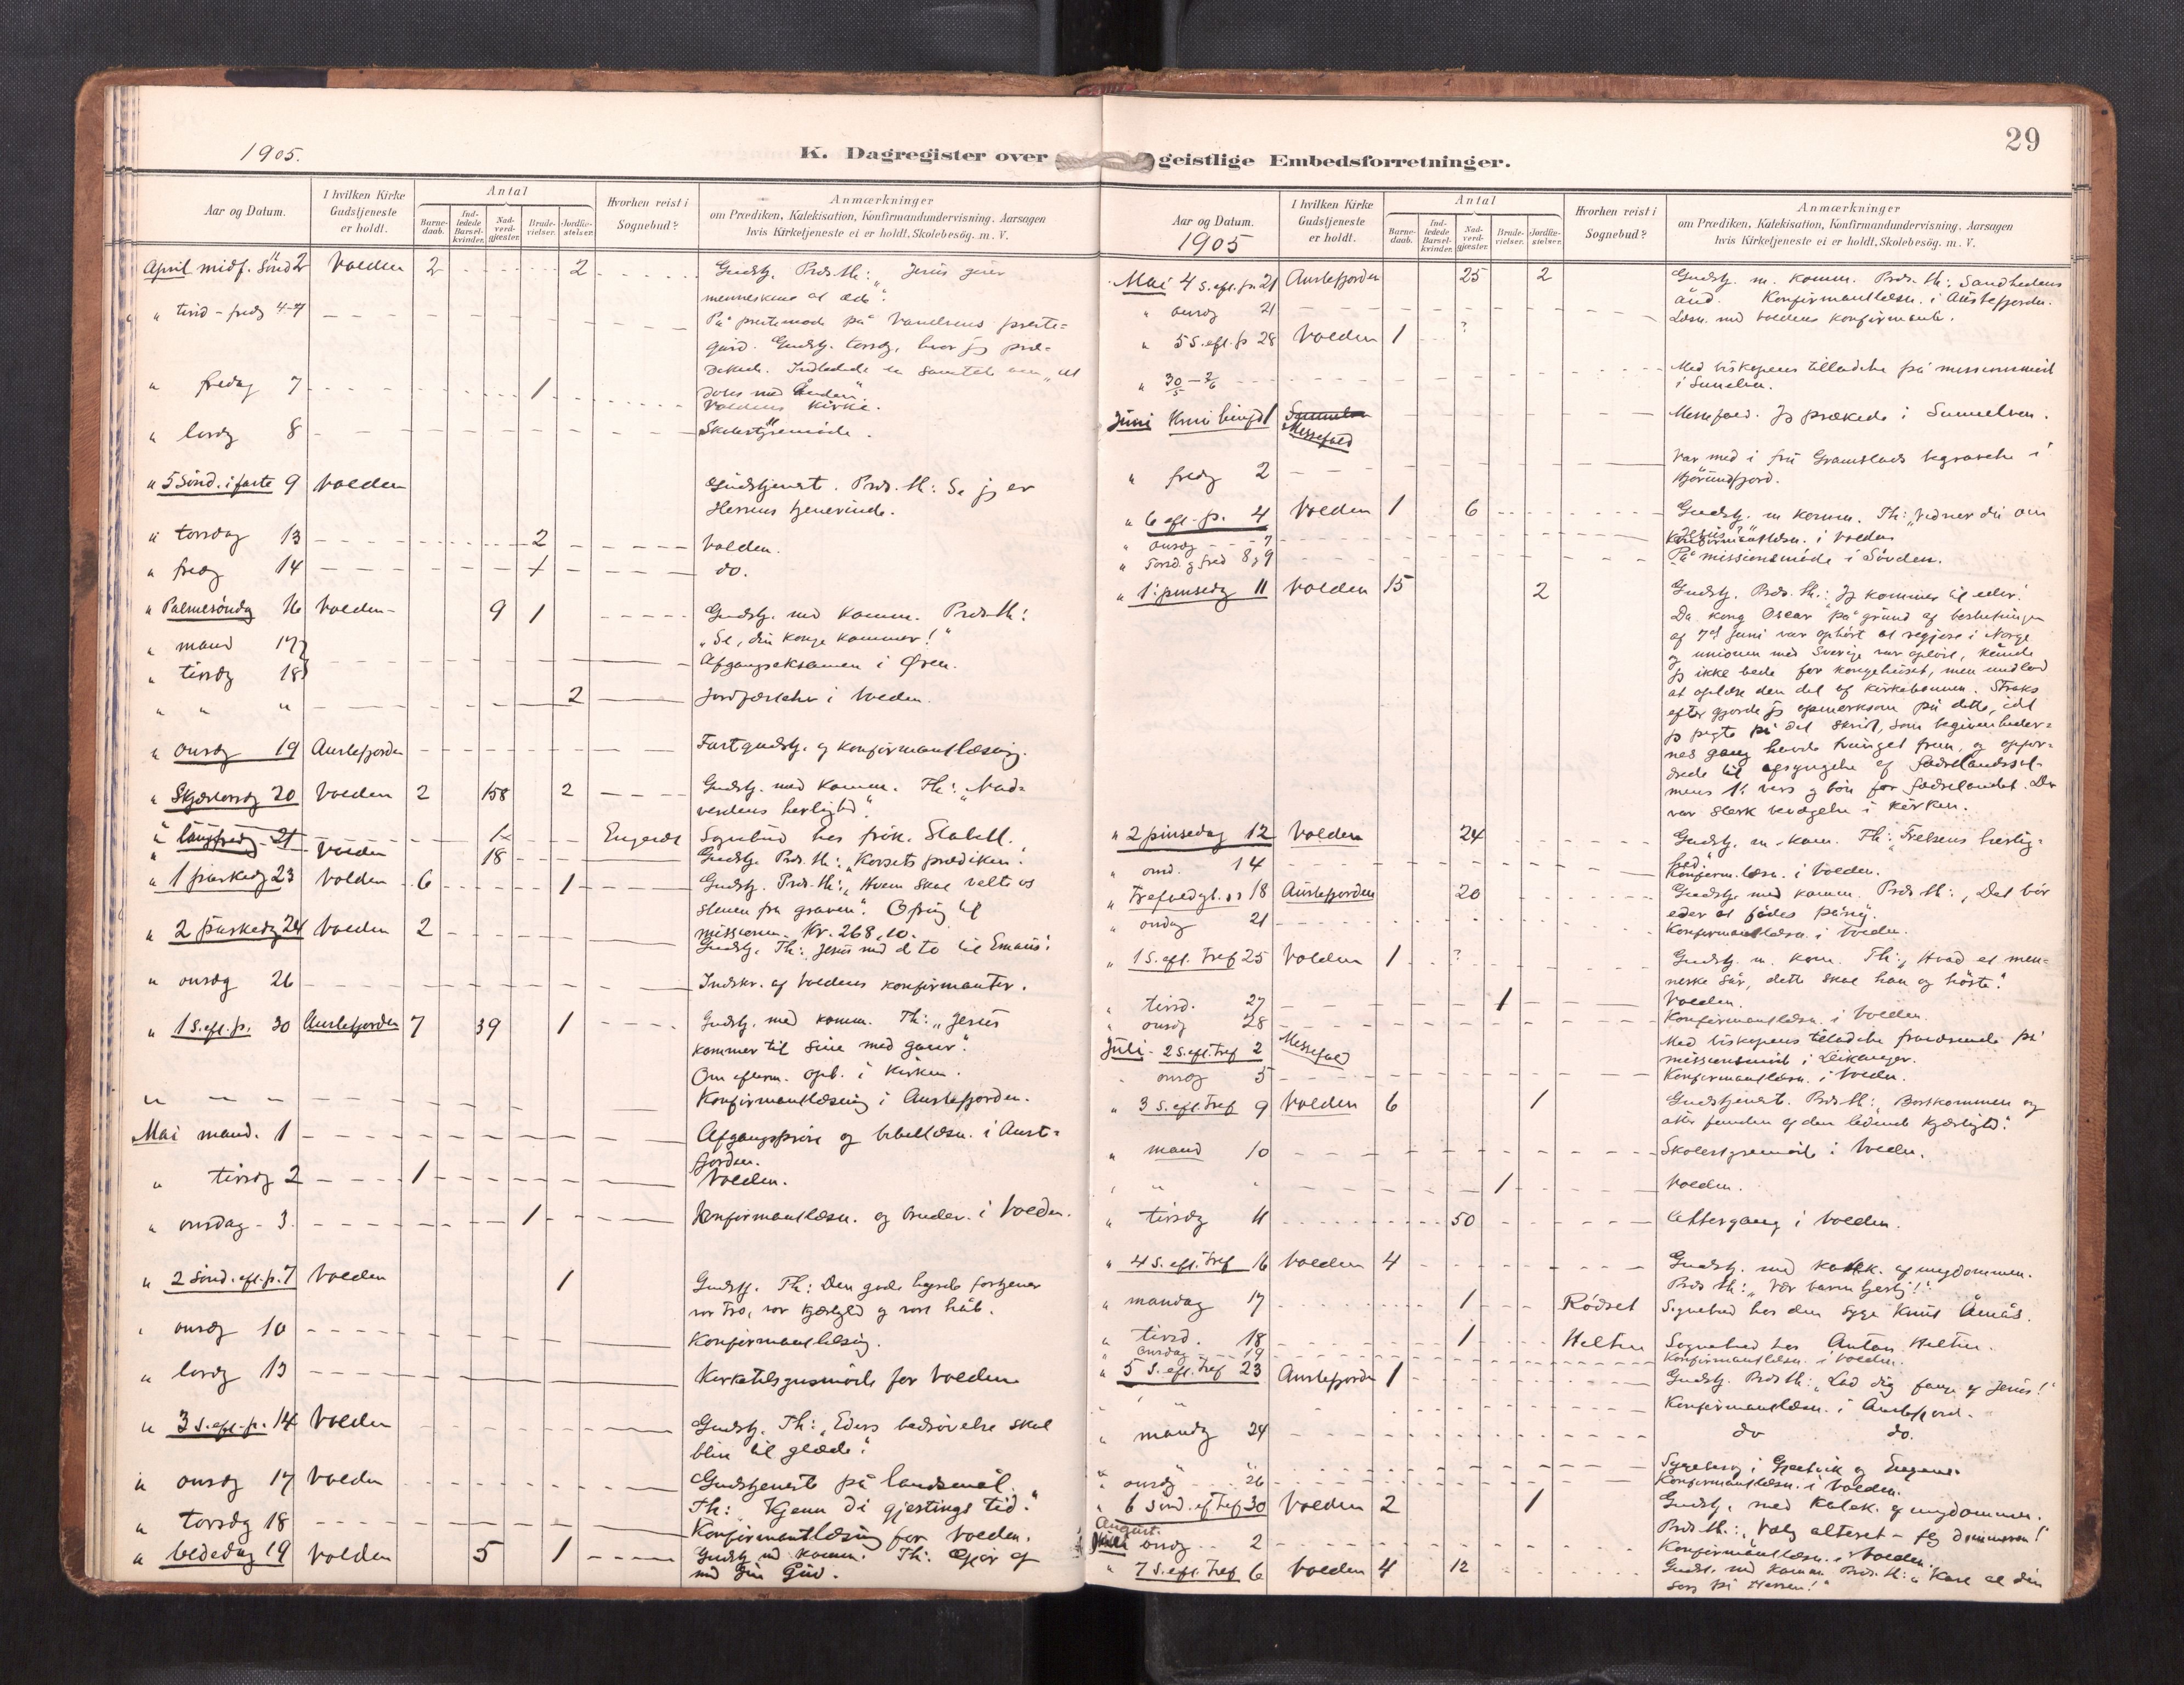 1905.
K. Dagregister over
Aar og Datum.
I hvilken Kirke
Gudstjeneste
er holdt.
Antal
Barne-
daab.
Ind-
ledede
Barsel-
kvinder.
Nad-
verd-
gjester.
Brude-
vielser.
Jordfæ-
stelser.
Hvorhen reist i
Sognebud?
Anmærkninger
om Prædiken, Katekisation, Konfirmandundervisning, Aarsagen
hvis Kirketjeneste ei er holdt, Skolebesög. m. V.
April midf. Sönd 2 Volden 2 2 Gudstj. Præd. th: "Jesus giver
menneskene at æde".
" tirsd - fred 4-7 På prestemöde på Vanelvens preste-
gård. Gudstj. torsdg, hvor jeg præ-
dikede. Indledede en samtale om "at
döbes med Ånden".
" fredag 7 1 Voldens kirke.
" lördg 8 Skolestyremöde.
" 5 Sönd. i faste 9 Volden Gudstjenest. Præd. th: Se jeg er
Herrens tjenerinde.
" torsdag 13 2 Volden.
" fredg 14 1 do.
" Palmesöndg 16 Volden 9 1 Gudstj. med komm. Præd. th:
"Se, din konge kommer!"
" mand 17
" tirsdg 18 Afgangseksamen i Øren.
" " " 2 Jordfæstelse i Volden.
" onsdg 19 Austefjorden Fastgudstj. og konfirmantlæsning.
" Skjærtorsdg 20 Volden 2 158 2 Gudstj. med komm. Th: "Nad-
verdens herlighed".
" langfredg 21 Volden Sognebud hos frök. Stabell.
18 Gudstj. Præd. th: "Korsets prædiken".
" 1 påskedg 23 Volden 6 1 Gudstj. Præd. th: "Hvem skal vælte os
stenen fra graven". Ofring til
missionen. Kr. 268,10.
" 2 påskedg 24 Volden 2 Gudstj. Th: Jesus med de to til Emaus.
" onsdag 26 Indskr. af Voldens konfirmanter.
" 1 S. eft. p. 30 Austefjorden 7 39 1 Gudstj. med komm. Th: "Jesus
kommer til sine med gaver".
Om efterm. opb. i kirken.
" " " Konfirmantlæsning i Austefjorden.
Mai mand. 1 Afgangspröve og bibellæsn. i Aust-
fjorden.
" tirsdg 2 1 Volden.
" onsdag - 3 1 Konfirmantlæsn. og brudev. i Volden.
" 2 Sönd. eft. p. 7 Volden 1 Gudstj. Th: Den gode hyrde fortjener
vor tro, vor kjærlighed og vort håb.
" onsdg 10 Konfirmantlæsning.
" lördg 13 Kirketilsynsmöde for Volden
" 3 S. eft. p. 14 Volden Gudstj. Th: "Eders bedrövelse skal
blive til glæde".
" onsdg 17 Volden Gudstjeneste på landsmål.
Th: "Kjenn di gjestings tid".
" torsdg 18 Konfirmantlæsning for Volden.
" bededag 19 Volden 5 1 Gudstj. md komm. Th:
md din Gud.
29
geistlige Embedsforretninger.
Aar og Datum.
1905
I hvilken Kirke
Gudstjeneste
er holdt.
Antal
Barne-
daab.
Ind-
ledede
Barsel-
kvinder.
Nad-
verd-
gjester.
Brude-
vielser.
Jordfæ-
stelser.
Hvorhen reist i
Sognebud?
Anmærkninger
om Prædiken, Katekisation, Konfirmandundervisning, Aarsagen
hvis Kirketjeneste ei er holdt, Skolebesög. m. V.
Mai 4 S. eft. p. 21 Austefjorden 25 2 Gudstj. m. komm. Præd. th: Sandhedens
ånd. Konfirmantlæsn. i Austefjorden.
" onsdg 21 Læsn. med Voldens konfirmanter.
" 5 S. eft. p 28 Volden 1 ?
" 30/5 - 2/6 Med biskopens tilladelse på missionsmöde
i Sunelven.
Juni Kristi himfd 1 Sunnelven Messefald Messefald. Jeg prækede i Sunnelven.
" fredg 2 Var med i fru Gramstads begravelse i
Hjörundfjord.
" 6 eft. p. 4 Volden 1 6 Gudstj. m komm. Th: "Vidner du om
Jesus?"
" onsdg 7 Konfirmantlæsn. i Volden
" Torsd. g fred 8 g 9 På missionsmöde i Sövden.
" 1. pinsedg 11 Volden 15 2 Gudstj. Præd. th.: Jeg kommer til eder.
Da kong Oscar på grund af beslutningen
af 7d Juni var ophört at regjere i Norge
og unionen med Sverige var oplöst, kunde
jeg ikke bede for kongehuset, men undlod
at oplæse den del af kirkebönnen. Straks
efter gjorde jeg opmerksom på dette, idet
jeg pegte på det skridt, som begivenheder-
nes gang havde tvunget frem, og opfor-
drede til afsyngelse af fædrelandssal-
mens 1. vers og bön for fædrelandet. Der
var sterk bevægelse i kirken.
" 2 pinsedag 12 Volden 24 Gudstj. m. kom. Th: "Frelsens herlig-
hed".
" onsd. 14 Konfirm. læsn. i Volden.
" Trefoldgh. s. 18 Austefjorden 20 Gudstj. med komm. Præd. th: "Det bör
eder at födes påny.
" onsdag 21 Konfirmantlæsn. i Volden.
" 1 S. eft. Tref 25 Volden 1 ? Gudstj. m. kom. Th: "Hvad et men-
neske sår, dette skal han og höste."
" tirsd. 27 1 Volden.
" onsdg 28 Konfirmantlæsn. i Volden.
Juli - 2 S. eft. tref 2 Messefald Med biskopens tilladelse fraværende på
missionsmöde i Leikanger.
" onsdg 5 Konfirmantlæsn. i Volden.
" 3 S. eft. Tref 9 Volden 6 1 Gudstjenest. Præd. th: "Bortkommen og
atter funden af den ledende kjærlighed".
" mand 10 Skolestyremöde i Volden.
" " " 1 Volden.
" tirsdg 11 50 Altergang i Volden.
" 4 S. eft. Tref 16 Volden 4 Gudstj. med katek. af ungdommen.
Præd th: "Vær barmhjertig!"
" mandag 17 1 Rödset Sognebud hos den syge Knut Åmås.
" tirsd. 18 1 Heltne Sognebud hos Anton Heltne.
" onsdag 19 Konfirmantlæsn. i Volden.
" 5 S. eft. Tref 23 Austefjorden 1 Gudstj. Præd th: "Lad dig fange af Jesus!"
" " Konfirmantlæsn. i Austefjord.
" mandg 24 do do.
" " " Sygebesög i Gjertvik og
" onsdg 26 Konfirmantlæsn. i Volden.
" 6 Sönd. ef Tref 30 Volden 2 1 Gudstj. med Katek. af ungdommen.
Præd. th: "Vælg alteret - fly dommeren!"
August.
Juli onsdg 2 Konfirmantlæsn. i Volden.
" 7 S. eft. Tref 6 Volden 4 12 Gudst. med komm. Præd. th: "Kast al din
sorg på Herren!"